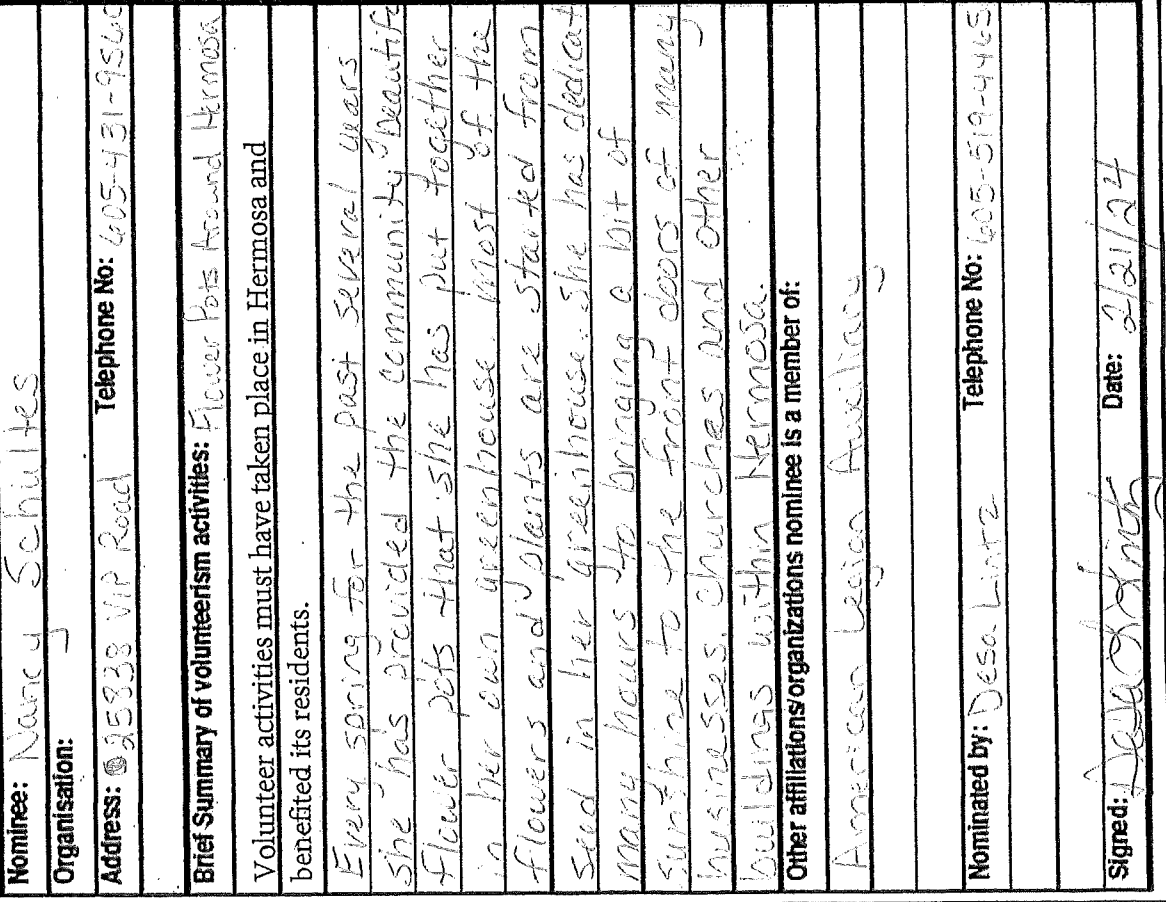 Nominee: Nancy Schultes
Organisation:
Address: 25838 VIP Road Telephone No: 605-431-956
Brief Summary of volunteerism activities: Flower Pots Around Hermosa
Volunteer activities must have taken place in Hermosa and
benefited its residents.
Every spring for the past several years
she has provided the community beautif
flower pots that she has put together
in her own greenhouse. most of the
flowers and plants are started from
seed in her greenhouse. she has dedicat
many hours to bringing a bit of
sunshine to the front doors of many
businesses, churches and other
buildings within Hermosa.
Other affiliations/organizations nominee is a member of:
American Legion Auxiliary
Nominated by: Desa Lintz Telephone No: 605-519-4465
Signed: Date: 2/21/24